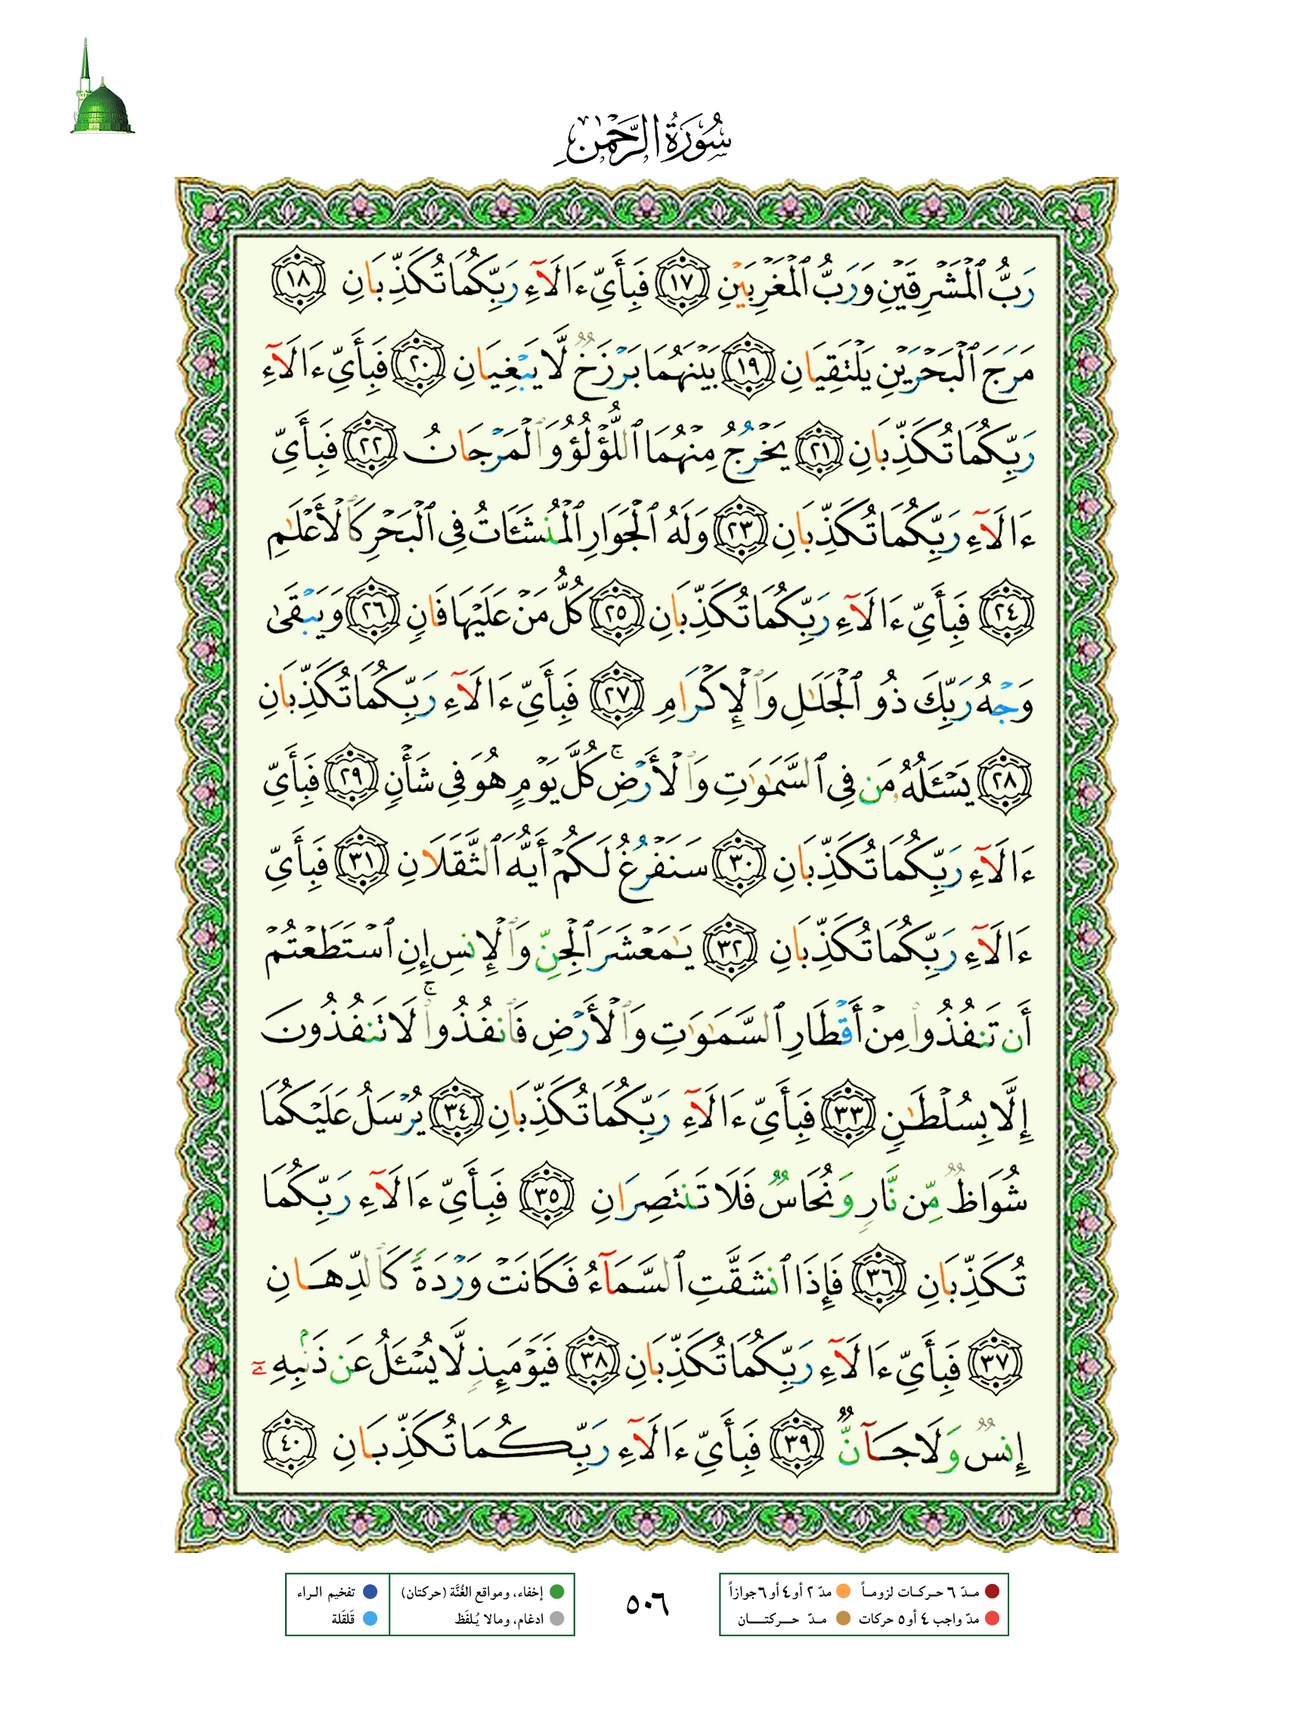 سُورَةُ الرَّحْمَٰنِ
رَبُّ ٱلْمَشْرِقَيْنِ وَرَبُّ ٱلْمَغْرِبَيْنِ ١٧ فَبِأَىِّ ءَالَآءِ رَبِّكُمَا تُكَذِّبَانِ ١٨
مَرَجَ ٱلْبَحْرَيْنِ يَلْتَقِيَانِ ١٩ بَيْنَهُمَا بَرْزَخٌ لَّا يَبْغِيَانِ ٢٠ فَبِأَىِّ ءَالَآءِ
رَبِّكُمَا تُكَذِّبَانِ ٢١ يَخْرُجُ مِنْهُمَا ٱللُّؤْلُؤُ وَٱلْمَرْجَانُ ٢٢ فَبِأَىِّ
ءَالَآءِ رَبِّكُمَا تُكَذِّبَانِ ٢٣ وَلَهُ ٱلْجَوَارِ ٱلْمُنشَـَٔاتُ فِى ٱلْبَحْرِ كَٱلْأَعْلَـٰمِ
٢٤ فَبِأَىِّ ءَالَآءِ رَبِّكُمَا تُكَذِّبَانِ ٢٥ كُلُّ مَنْ عَلَيْهَا فَانٍ ٢٦ وَيَبْقَىٰ
وَجْهُ رَبِّكَ ذُو ٱلْجَلَـٰلِ وَٱلْإِكْرَامِ ٢٧ فَبِأَىِّ ءَالَآءِ رَبِّكُمَا تُكَذِّبَانِ
٢٨ يَسْـَٔلُهُۥ مَن فِى ٱلسَّمَـٰوَٰتِ وَٱلْأَرْضِ ۚ كُلَّ يَوْمٍ هُوَ فِى شَأْنٍ ٢٩ فَبِأَىِّ
ءَالَآءِ رَبِّكُمَا تُكَذِّبَانِ ٣٠ سَنَفْرُغُ لَكُمْ أَيُّهَ ٱلثَّقَلَانِ ٣١ فَبِأَىِّ
ءَالَآءِ رَبِّكُمَا تُكَذِّبَانِ ٣٢ يَـٰمَعْشَرَ ٱلْجِنِّ وَٱلْإِنسِ إِنِ ٱسْتَطَعْتُمْ
أَن تَنفُذُوا۟ مِنْ أَقْطَارِ ٱلسَّمَـٰوَٰتِ وَٱلْأَرْضِ فَٱنفُذُوا۟ ۚ لَا تَنفُذُونَ
إِلَّا بِسُلْطَـٰنٍ ٣٣ فَبِأَىِّ ءَالَآءِ رَبِّكُمَا تُكَذِّبَانِ ٣٤ يُرْسَلُ عَلَيْكُمَا
شُوَاظٌ مِّن نَّارٍ وَنُحَاسٌ فَلَا تَنتَصِرَانِ ٣٥ فَبِأَىِّ ءَالَآءِ رَبِّكُمَا
تُكَذِّبَانِ ٣٦ فَإِذَا ٱنشَقَّتِ ٱلسَّمَآءُ فَكَانَتْ وَرْدَةً كَٱلدِّهَانِ
٣٧ فَبِأَىِّ ءَالَآءِ رَبِّكُمَا تُكَذِّبَانِ ٣٨ فَيَوْمَئِذٍ لَّا يُسْـَٔلُ عَن ذَنۢبِهِۦٓ
إِنسٌ وَلَا جَآنٌّ ٣٩ فَبِأَىِّ ءَالَآءِ رَبِّكُمَا تُكَذِّبَانِ ٤٠
مدّ ٦ حركات لزوماً مدّ ٢ أو ٤ أو ٦ جوازاً
مدّ واجب ٤ أو ٥ حركات مدّ حركتان
٥٠٦
إخفاء، ومواقع الغُنَّة (حركتان) تفخيم الراء
ادغام، ومالا يُلفَظ قَلقَلة